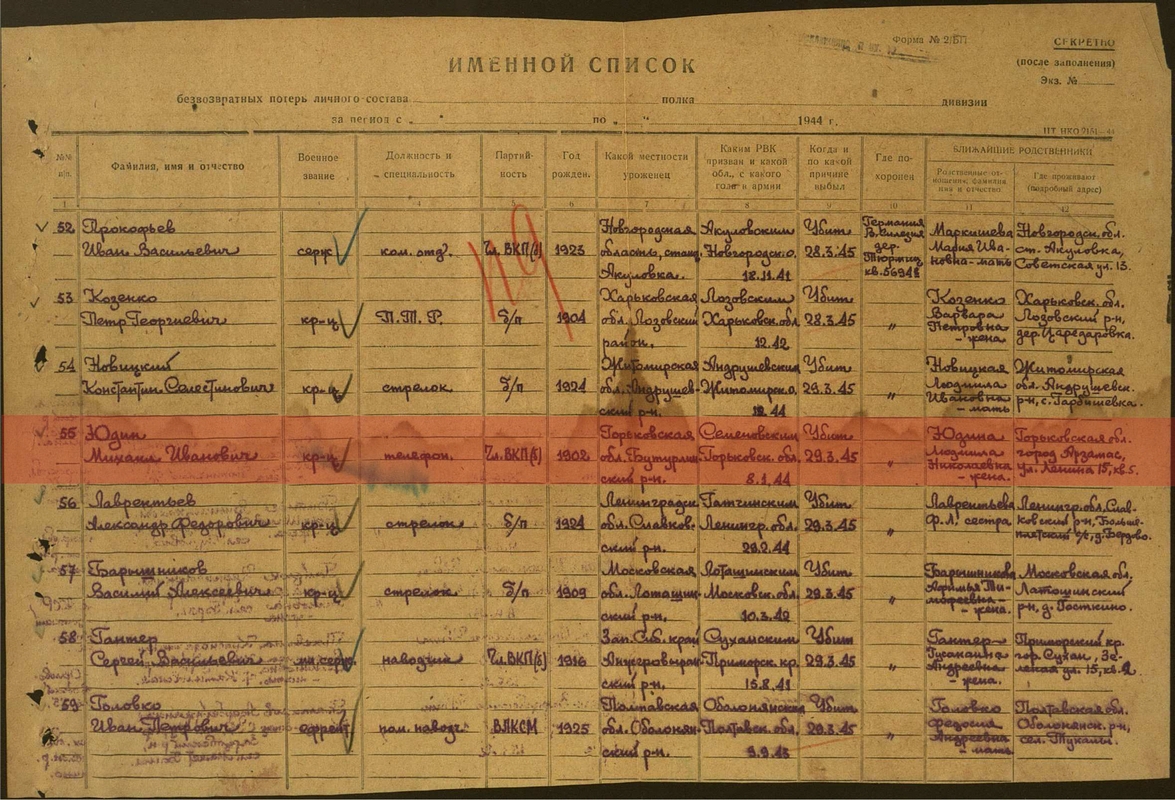 Форма № 2/БП
СЕКРЕТНО
(после заполнения)
Экз. №
ИМЕННОЙ СПИСОК
безвозвратных потерь личного состава полка дивизии
за период с „ “ по „ “ 1944 г.
№№ п/п.
Фамилия, имя и отчество
Военное звание
Должность и специальность
Партийность
Год рожден.
Какой местности уроженец
Каким РВК призван и какой обл., с какого года в армии
Когда и по какой причине выбыл
Где похоронен
БЛИЖАЙШИЕ РОДСТВЕННИКИ
Родственные отношения, фамилия имя и отчество
Где проживают (подробный адрес)
119
52 Прокофьев Новгородская Акуловским Убит Германия Маркишева Новгородск. обл.
Иван Васильевич серж ком. отд. Чл. ВКП(б) 1923 область, станц. Новгородск. о. 28.3.45 В. Силезия дер. Мария Ива- ст. Акуловка,
Акуловка. 18.11.41 кв. 5694 новна-мать Советская ул. 13.
53 Козенко Харьковская Лозовским Убит Козенко Харьковск. обл.
Петр Георгиевич кр-ц П.Т.Р. б/п 1904 обл. Лозовский Харьковск. обл. 28.3.45 „ Варвара Лозовский р-н,
район. 12.42 Петровна - жена. дер. Цередаровка.
54 Новицкий Житомирская Андрушевским Убит Новицкая Житомирская
Константин Селестинович кр-ц стрелок б/п 1924 обл. Андрушев- Житомирск. о. 29.3.45 „ Людмила обл. Андрушевск.
ский р-н. 44 Ивановна - мать р-н, с. Гарбишевка.
55 Юдин Горьковская Семеновским Убит Юдина Горьковская обл.
Михаил Иванович кр-ц телефон. Чл. ВКП(б) 1902 обл. Бутурлин- Горьковск. обл. 29.3.45 „ Людмила город Арзамас,
ский р-н. 8.1.44 Николаевна - жена. ул. Ленина 15, кв 5.
56 Лаврентьев Ленинградск Гатчинским Убит Лаврентьева Ленингр. обл. Слав-
Александр Федорович кр-ц стрелок б/п 1924 обл. Славков- Ленингр. обл. 29.3.45 „ Ф. Л. сестра ковский р-н,
ский р-н. 29.2.44 с/с, д. Бердово.
57 Барышников Московская Лоташинским Убит Барышникова Московская обл.
Василий Алексеевич кр-ц стрелок б/п 1909 обл. Лоташин- Московск. обл. 29.3.45 „ Афимья Ти- Латошинский
ский р-н. 10.3.42 мофеевна - жена. р-н, д. Госткино.
58 Гантер Зап. Сиб. край Суханским Убит Гантер Приморский кр.
Сергей Васильевич мл. серж. наводчик Чл. ВКП(б) 1916 Приморск. кр. 29.3.45 „ Гусанаина гор. Сухан, Зе-
ский р-н. 15.8.41 Андреевна - жена. леная ул. 15, кв. 2
59 Головко Полтавская Оболонянским Убит Головко Полтавская обл.
Иван Петрович ефрейт пом. наводч. ВЛКСМ 1925 обл. Оболонян- Полтавск. обл. 29.3.45 „ Федосия Оболонянск. р-н,
ский р-н. 9.9.43 Андреевна - мать сел. Тукалы.